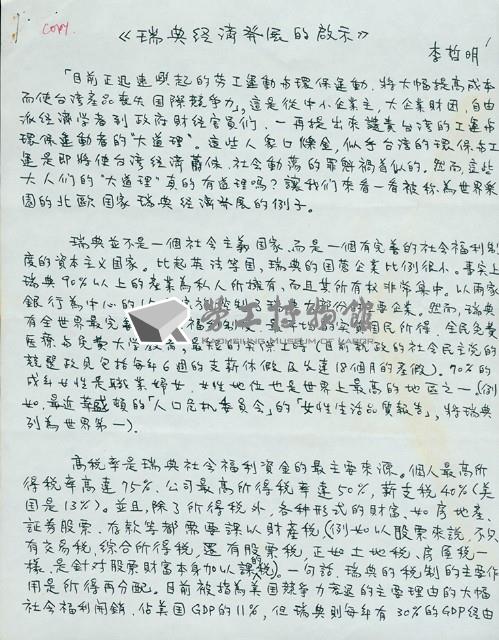 COPY.
《瑞典經濟發展的啟示》
李哲明
「目前正迅速興起的勞工運動与環保運動,將大幅提高成本
而使台湾產品喪失国際競争力」,這是從中小企業主、大企業財团、自由
派經濟学者到政府財經官員们,一再提出來譴責台湾的工運与
環保運動者的"大道理"。這些人眾口鑠金,似乎台湾的環保与工
運是即將使台湾經濟蕭條、社会動荡的罪魁禍首似的。然而,這些
大人们的"大道理"真的有道理嗎?讓我们來看一看被称為世界樂
園的北欧国家瑞典經濟發展的例子。
瑞典並不是一個社会主義国家,而是一個有完善的社会福利制
度的資本主义国家。比起英法等国,瑞典的国营企業比例很小。事实上
瑞典90%以上的產業為私人所擁有,而且其所有权非常集中。以兩家
銀行為中心的 部份 要企業。然而,瑞典
有全世界最完善 福利制 国民所得、全民免費
医療与免費大学教育, (目前執政的社会民主党的
競選政見包括每年6週的支薪休假及長達18個月的產假)。90%的
成年女性是職業婦女,女性地位也是世界上最高的地区之一(例
如,最近華盛頓的「人口危机委員会」的「女性生活品質報告」,將瑞典
列為世界第一)。
高税率是瑞典社会福利資金的最主要來源。個人最高所
得税率高達75%、公司最高所得税率達50%,薪支税40%(美
国是13%)。並且,除了所得税外,各种形式的財富,如房地產、
証券股票、存款等都需要課以財產税(例如以股票來說,不只
有交易税,綜合所得税,還有股票税,正如土地税、房屋税一
樣,是針对股票財富本身加以課的税)。一句話,瑞典的税制的主要作
用是所得再分配。目前被指為美国競争力落退的主要理由的大幅
社会福利開銷,佔美国GDP的11%,但瑞典則每年有30%的GDP經由
勞工博物館
KAOHSIUNG MUSEUM OF LABOR